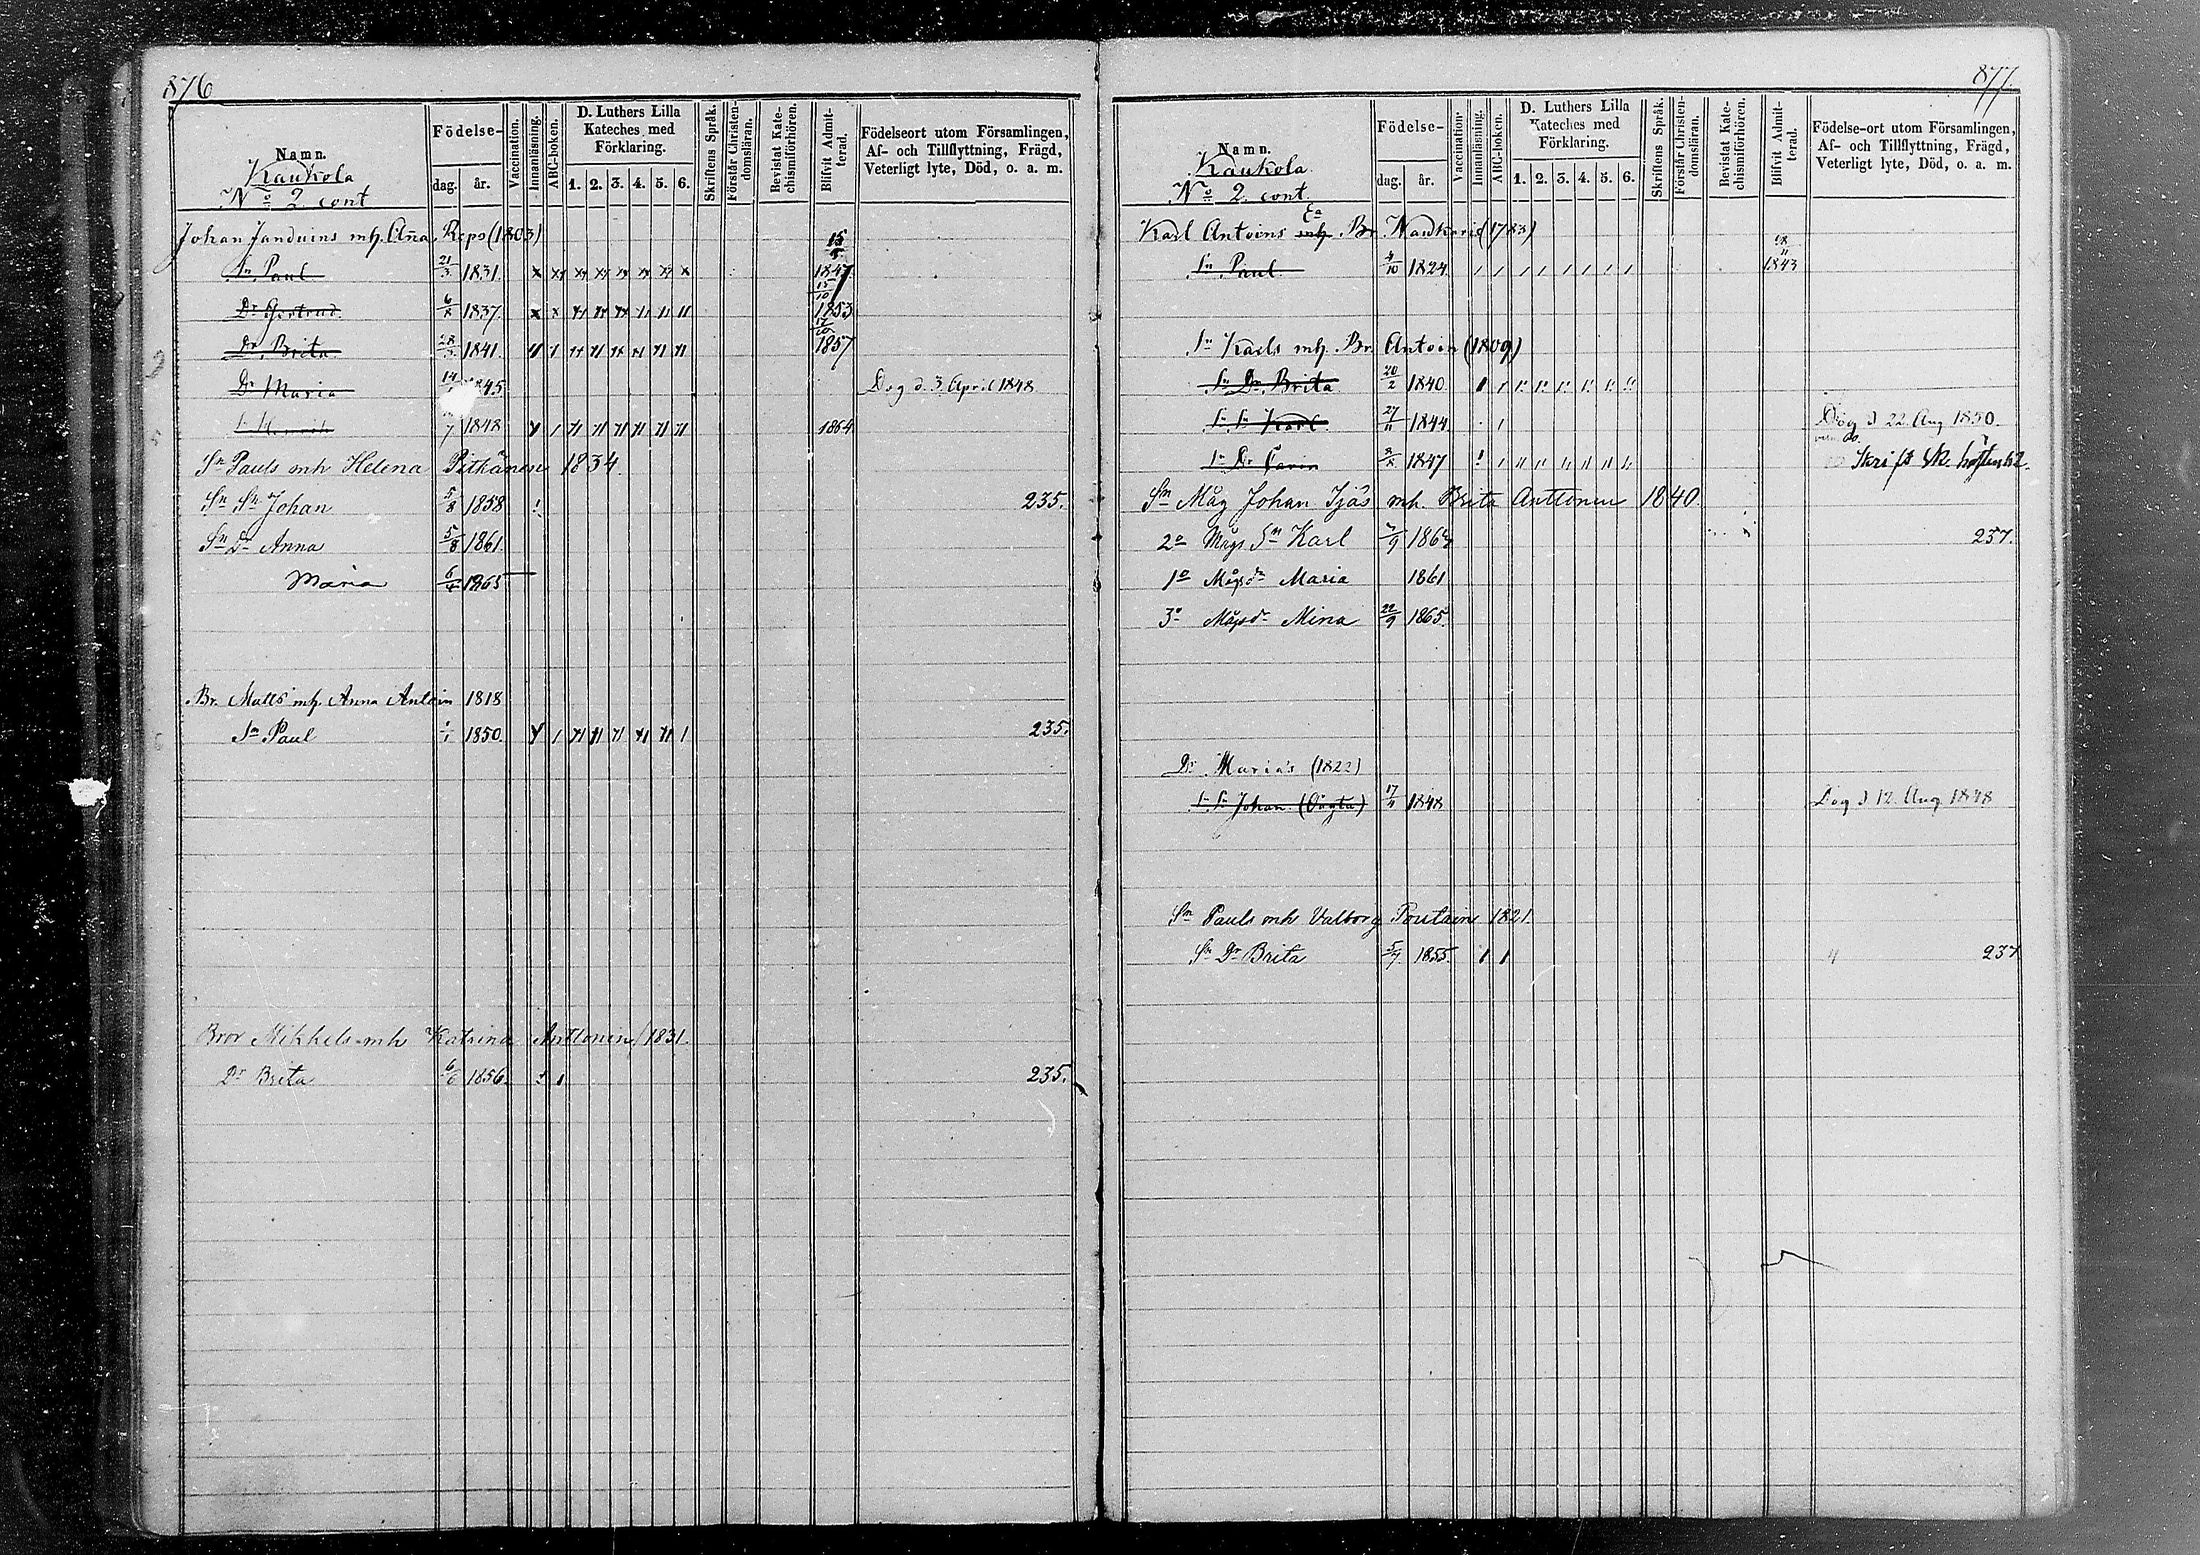 876
Namn.
Kaukola
No 2 cont
Födelse-
dag. år.
Vaccination.
Innanläsning.
ABC-boken.
D. Luthers Lilla
Kateches med
Förklaring.
1. 2. 3. 4. 5. 6.
Skriftens Språk.
Förstår Christen-
domsläran.
Bevistat Kate-
chismiförhören.
Blifvit Admit-
terad.
Födelseort utom Församlingen,
Af- och Tillflyttning, Frägd,
Veterligt lyte, Död, o. a. m.
Johan Janduins mh. Anna Reps (1803)
Sn Paul 21/3 1831. 1847
Dr Gertrud 1837. 15/10 1853
Dr Brita 1841. 1857
Dr Maria 14 1845 Dog d. 3. April 1848
1848 1864
Sn Pauls mh Helena Pitkänen 1834.
Sn Sn Johan 5/8 1858 235.
Sn Dr Anna 5/8 1861
Maria 1865
Br. Matts mh. Anna Antoin 1818
Sn Paul 1850. 235.
Bror Mikkels mh Katrina Anttonen 1831.
Dr Brita 6/6 1856. 235.
877.
Namn.
Kaukola.
No 2. cont.
Födelse-
dag. år.
Vaccination
Innanläsning.
ABC-boken.
D. Luthers Lilla
Kateches med
Förklaring.
1. 2. 3. 4. 5. 6.
Skriftens Språk.
Förstår Christen-
domsläran.
Bevistat Kate-
chismiförhören.
Blifvit Admit-
terad.
Födelse-ort utom Församlingen,
Af- och Tillflyttning, Frägd,
Veterligt lyte, Död, o. a. m.
Karl Antoins mh Ea Br. Naukkarin (1783)
Sn Paul 4/10 1824. 1843
Sn Karls mh. Br. Antoin (1809)
Sn Dr Brita 20/2 1840.
Sn Sn Karl 27/11 1844. Dog d 22. Aug 1850.
Sn Dr Carin 1847 Skrift
Sn Måg Johan Tjäs mh. Brita Anttonen 1840.
2o Mågs Sn Karl 1864 237.
1o Mågsdr Maria 1861
3o Mågsdr Mina 22/9 1865.
Dr Maria's (1822)
Sn Johan (Oägta) 17/4 1848 Dog d 12. Aug. 1848
Sn Pauls mh Valborg Poutain 1821.
Sn Dr Brita 5/7 1855. 237